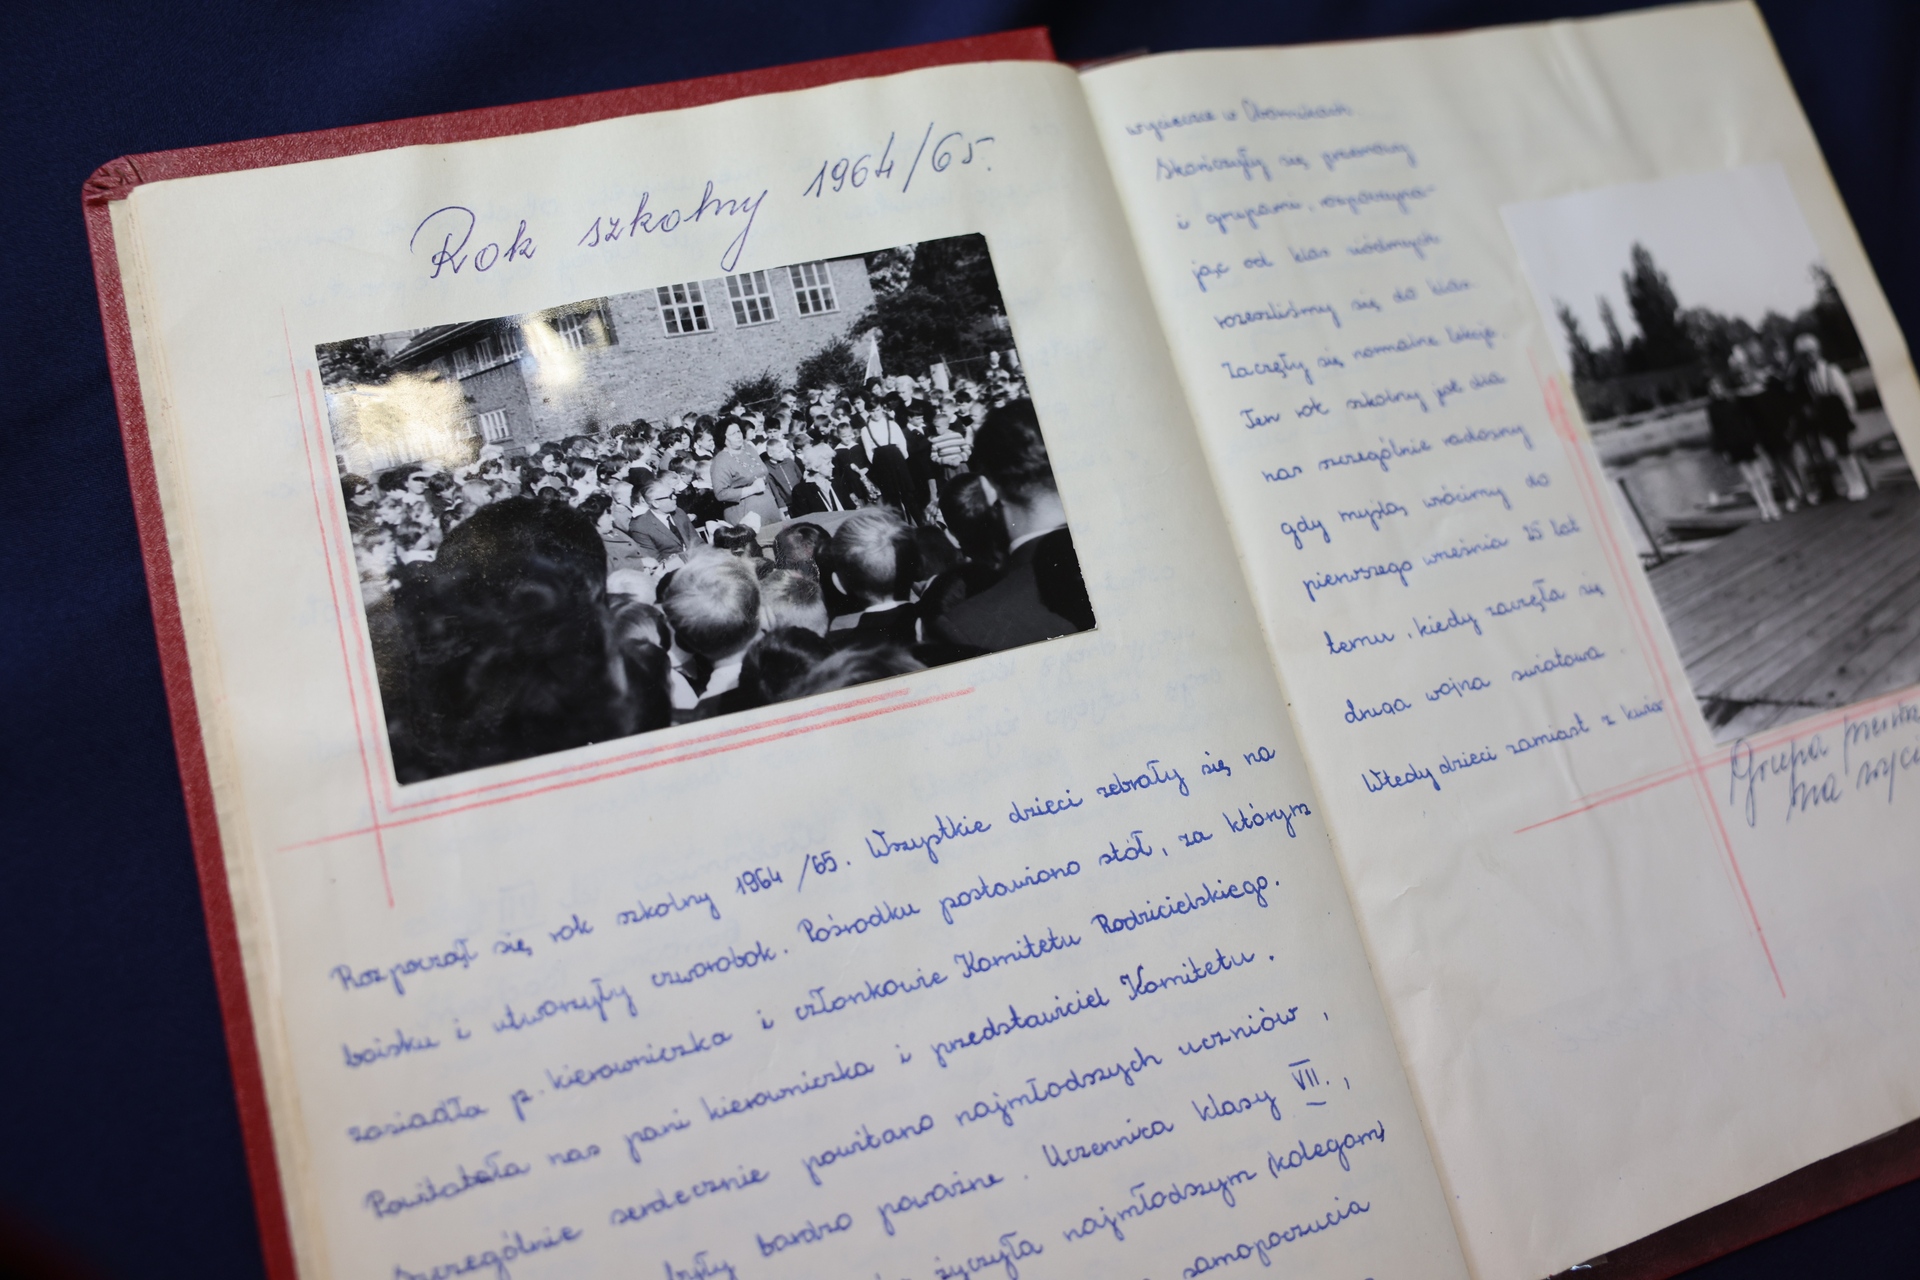 Rok szkolny 1964/65.
Rozpoczął się rok szkolny 1964/65. Wszystkie dzieci zebrały się na
boisku i utworzyły czworobok. Pośrodku postawiono stół, za którym
zasiadła p. kierowniczka i członkowie Komitetu Rodzicielskiego.
Powitała nas pani kierowniczka i przedstawiciel Komitetu.
Szczególnie serdecznie powitano najmłodszych uczniów,
były bardzo poważne. Uczennica klasy VII.,
życzyła najmłodszym kolegom
samopoczucia
w
Skończyły się przemowy
i grupami, rozpoczyna-
jąc od klas siódmych
rozeszliśmy się do klas.
Zaczęły się normalne lekcje.
Ten rok szkolny jest dla
nas szczególnie radosny
gdy myślą wrócimy do
pierwszego września 25 lat
temu, kiedy zaczęła się
druga wojna światowa.
Wtedy dzieci zamiast z
Grupa
na